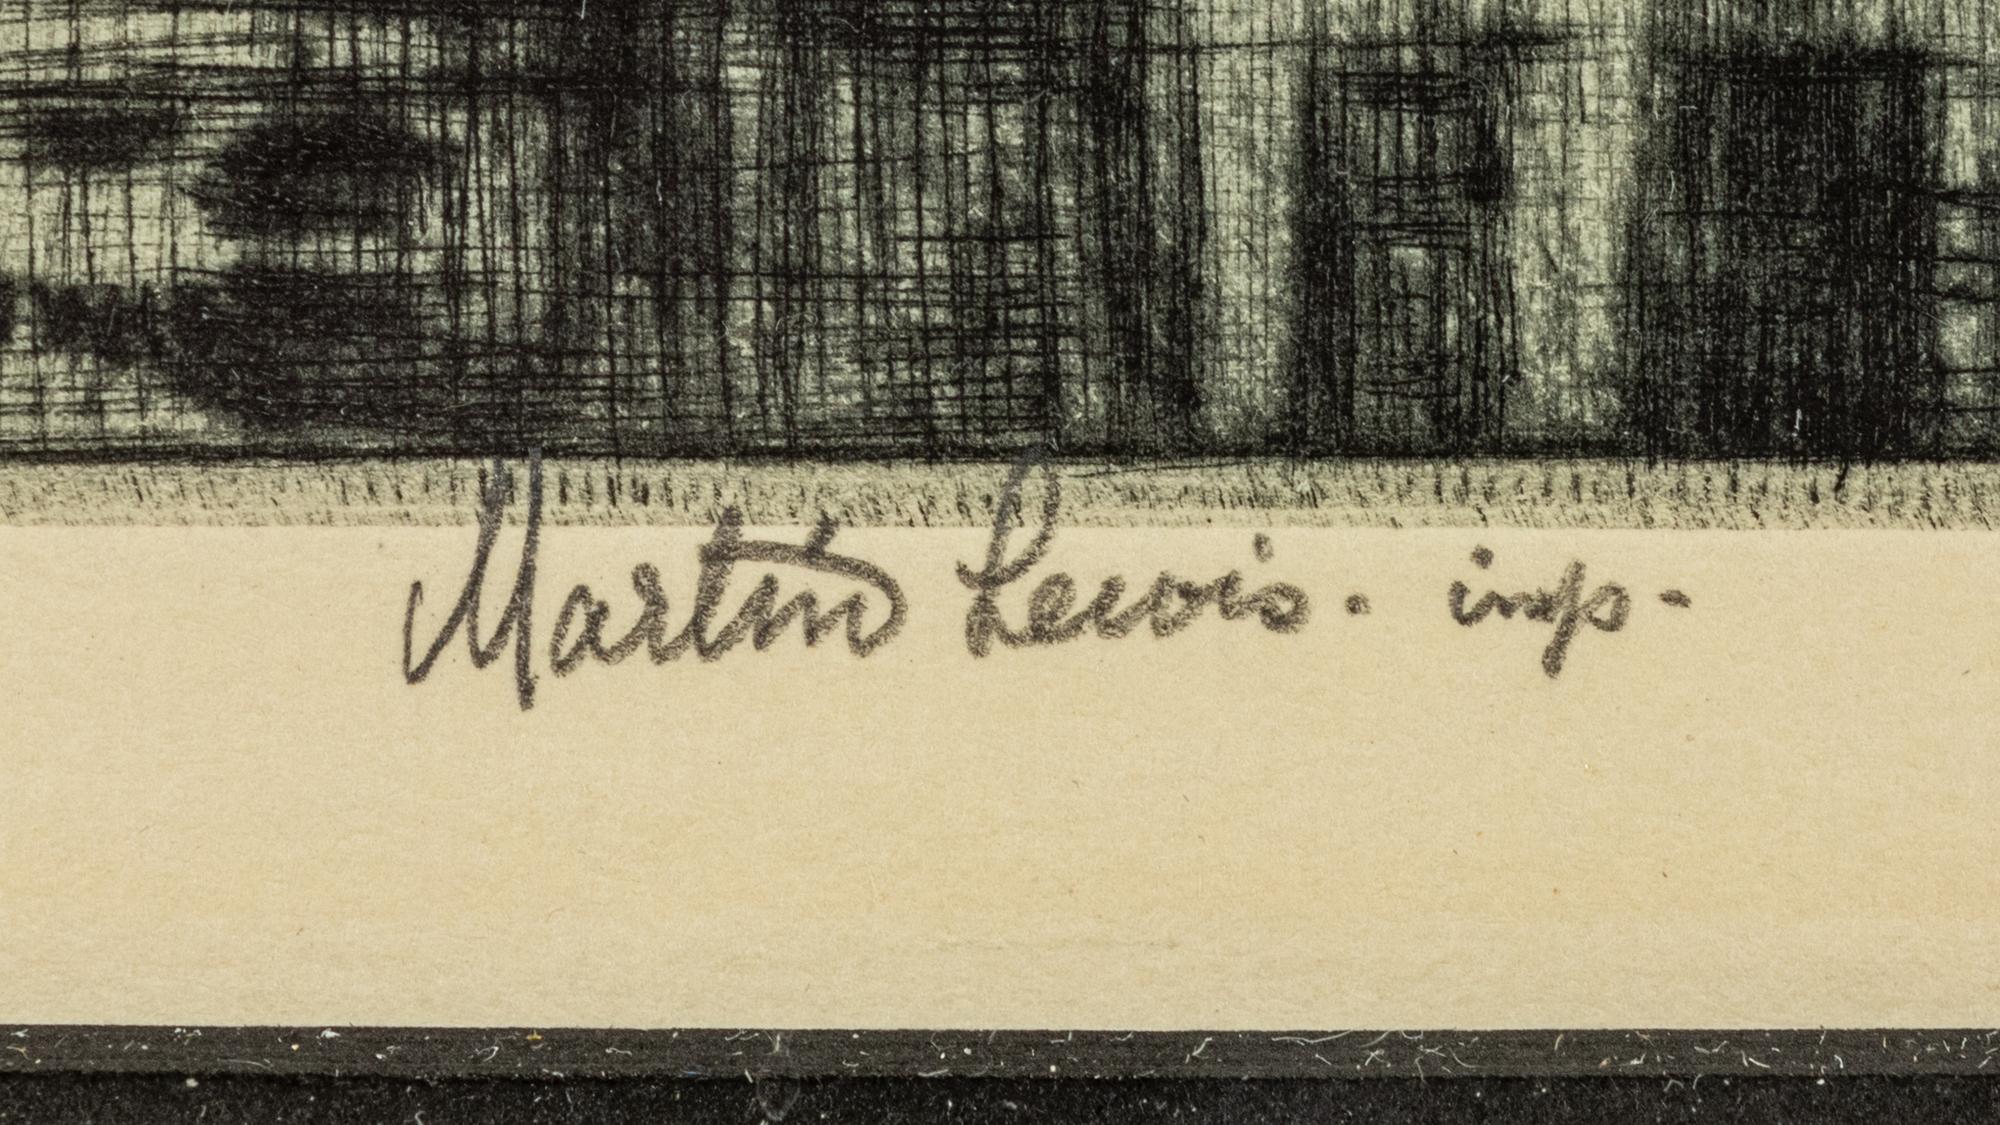 Martin Lewis. imp.